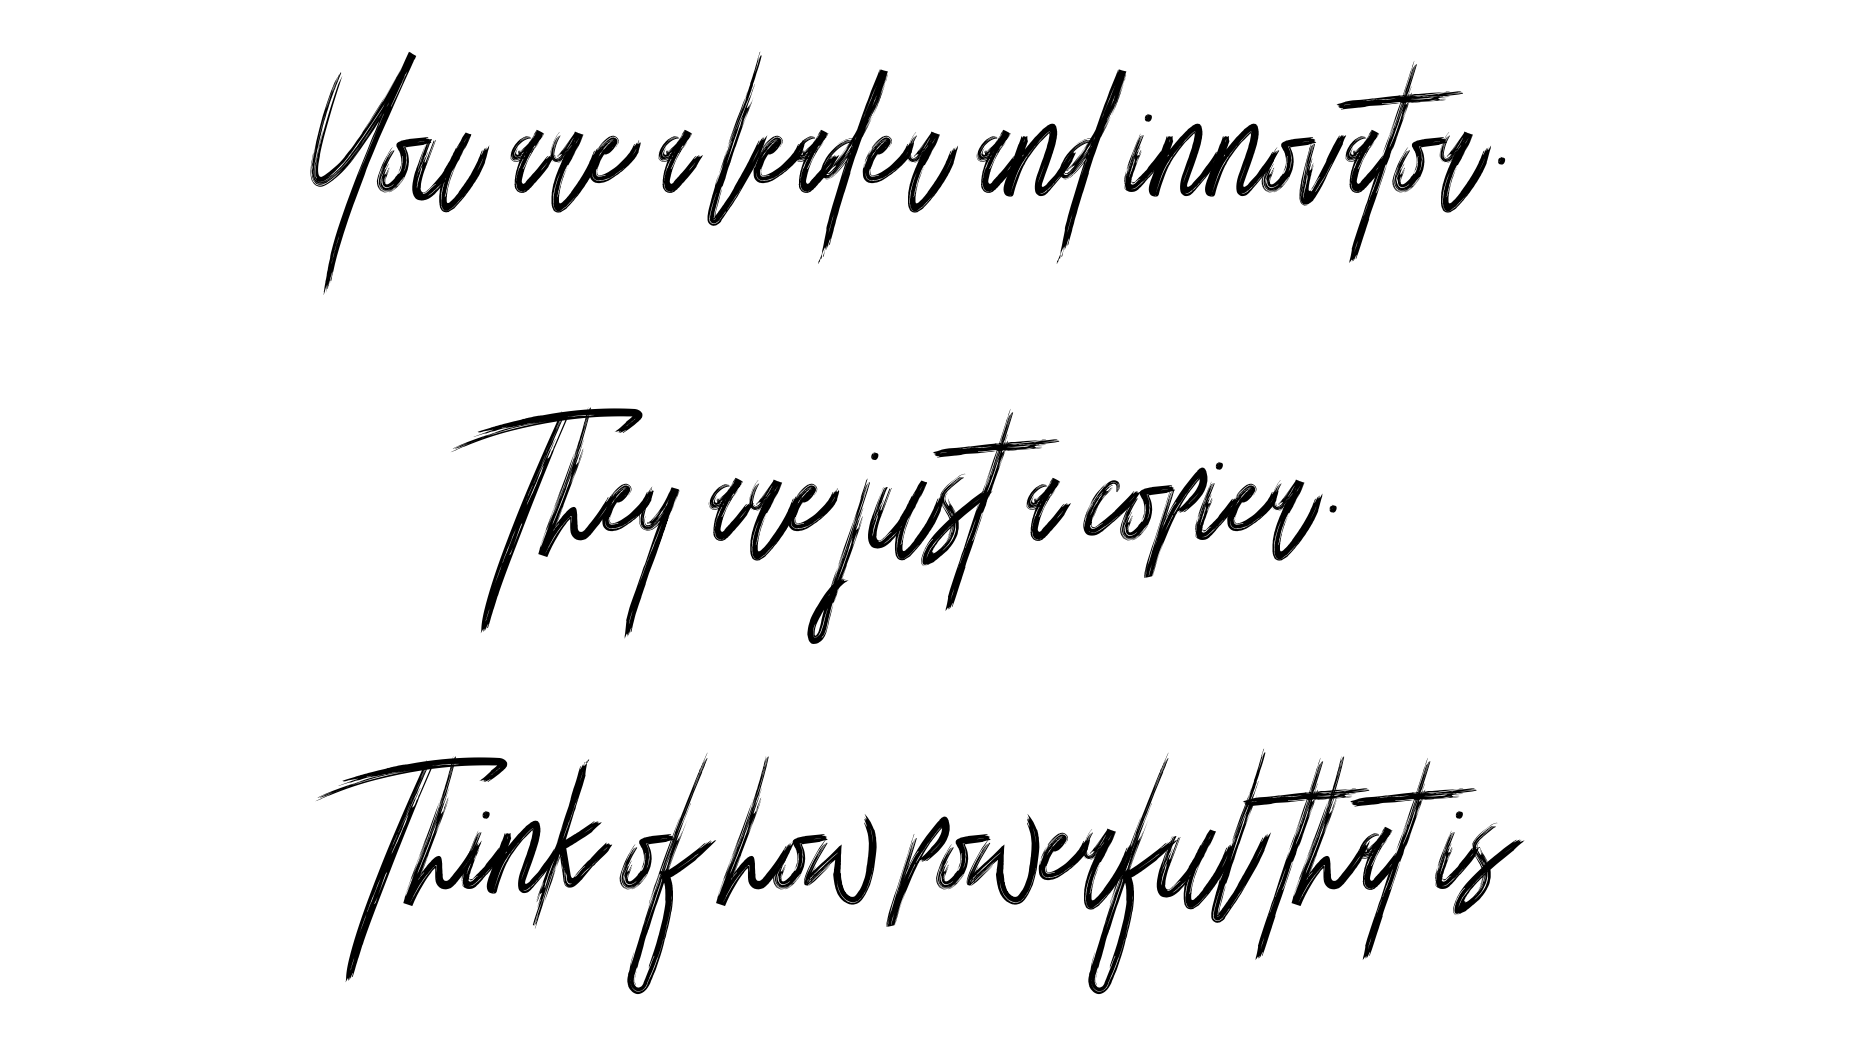 You are a leader and innovator.
They are just a copier.
Think of how powerful that is